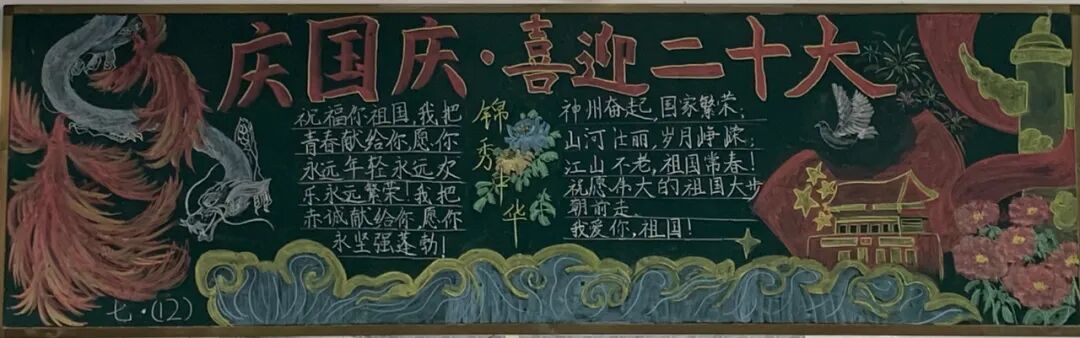 庆国庆·喜迎二十大
祝福你祖国,我把
青春献给你,愿你
永远年轻永远欢
乐永远繁荣!我把
赤诚献给你,愿你
永坚强蓬勃!
锦秀中华
神州奋起,国家繁荣;
山河壮丽,岁月峥嵘;
江山不老,祖国常春!
祝愿伟大的祖国大步
朝前走。
我爱你,祖国!
七·(12)